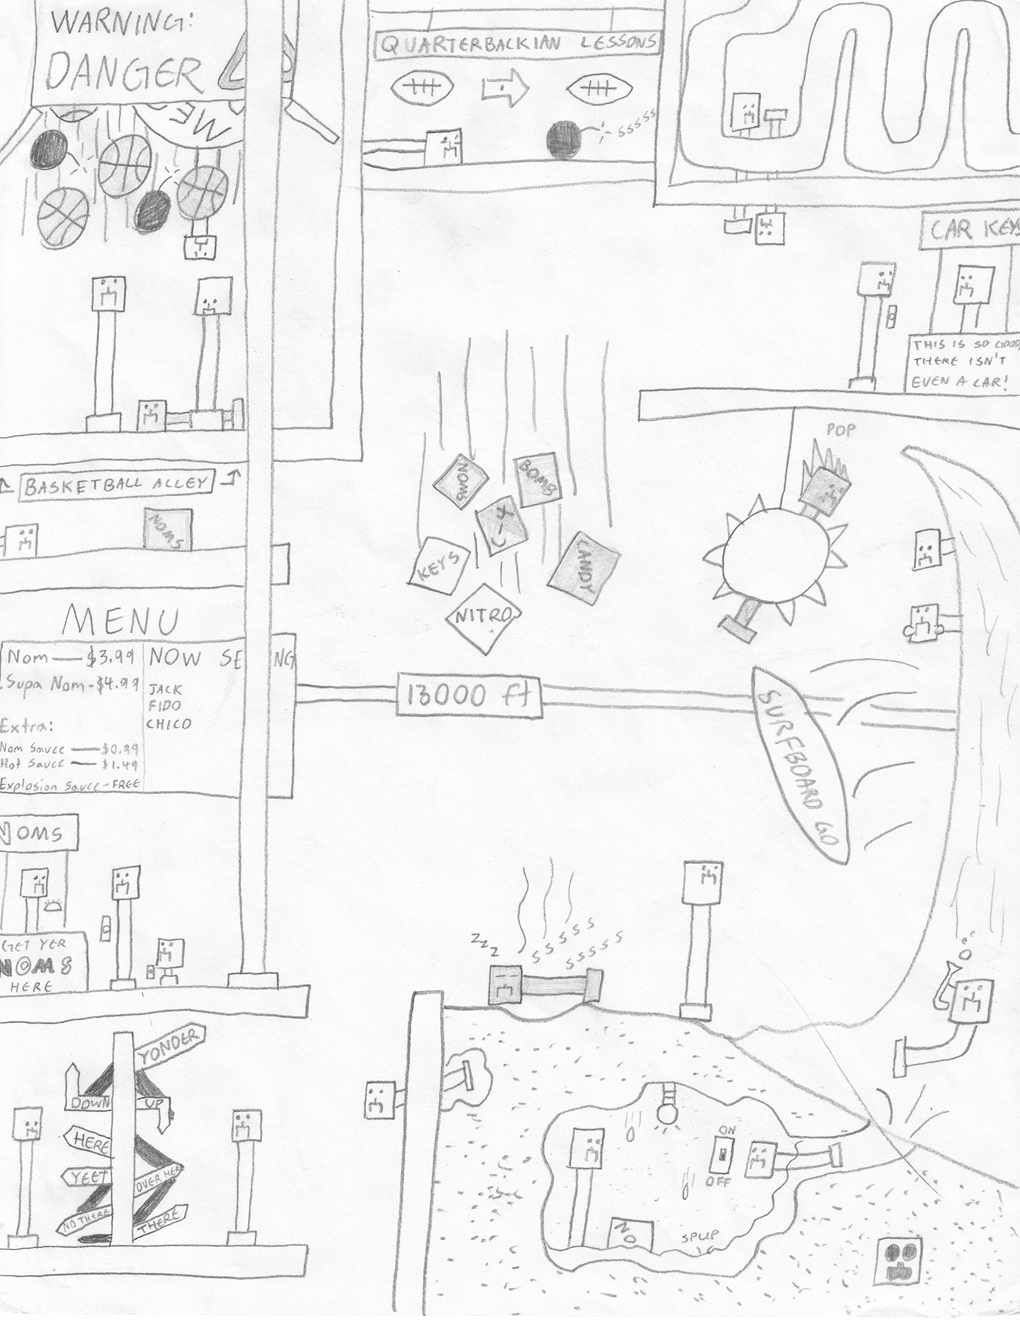 WARNING:
DANGER
QUARTERBACKIAN LESSONS
sssss
CAR KEYS
THIS IS SO GOOD,
THERE ISN'T
EVEN A CAR!
POP
BASKETBALL ALLEY
NOMS
NOMS
BOMB
KEYS
CANDY
NITRO
MENU
Nom - $3.99
Supa Nom - $4.99
Extra:
Nom Sauce - $0.99
Hot Sauce - $1.49
Explosion Sauce - FREE
NOW SE NG
JACK
FIDO
CHICO
13000 ft
SURFBOARD GO
NOMS
GET YER
NOMS
HERE
zzz
sssss
sssss
YONDER
DOWN
UP
HERE
YEET
OVER HERE
NO THERE
THERE
ON
OFF
NO